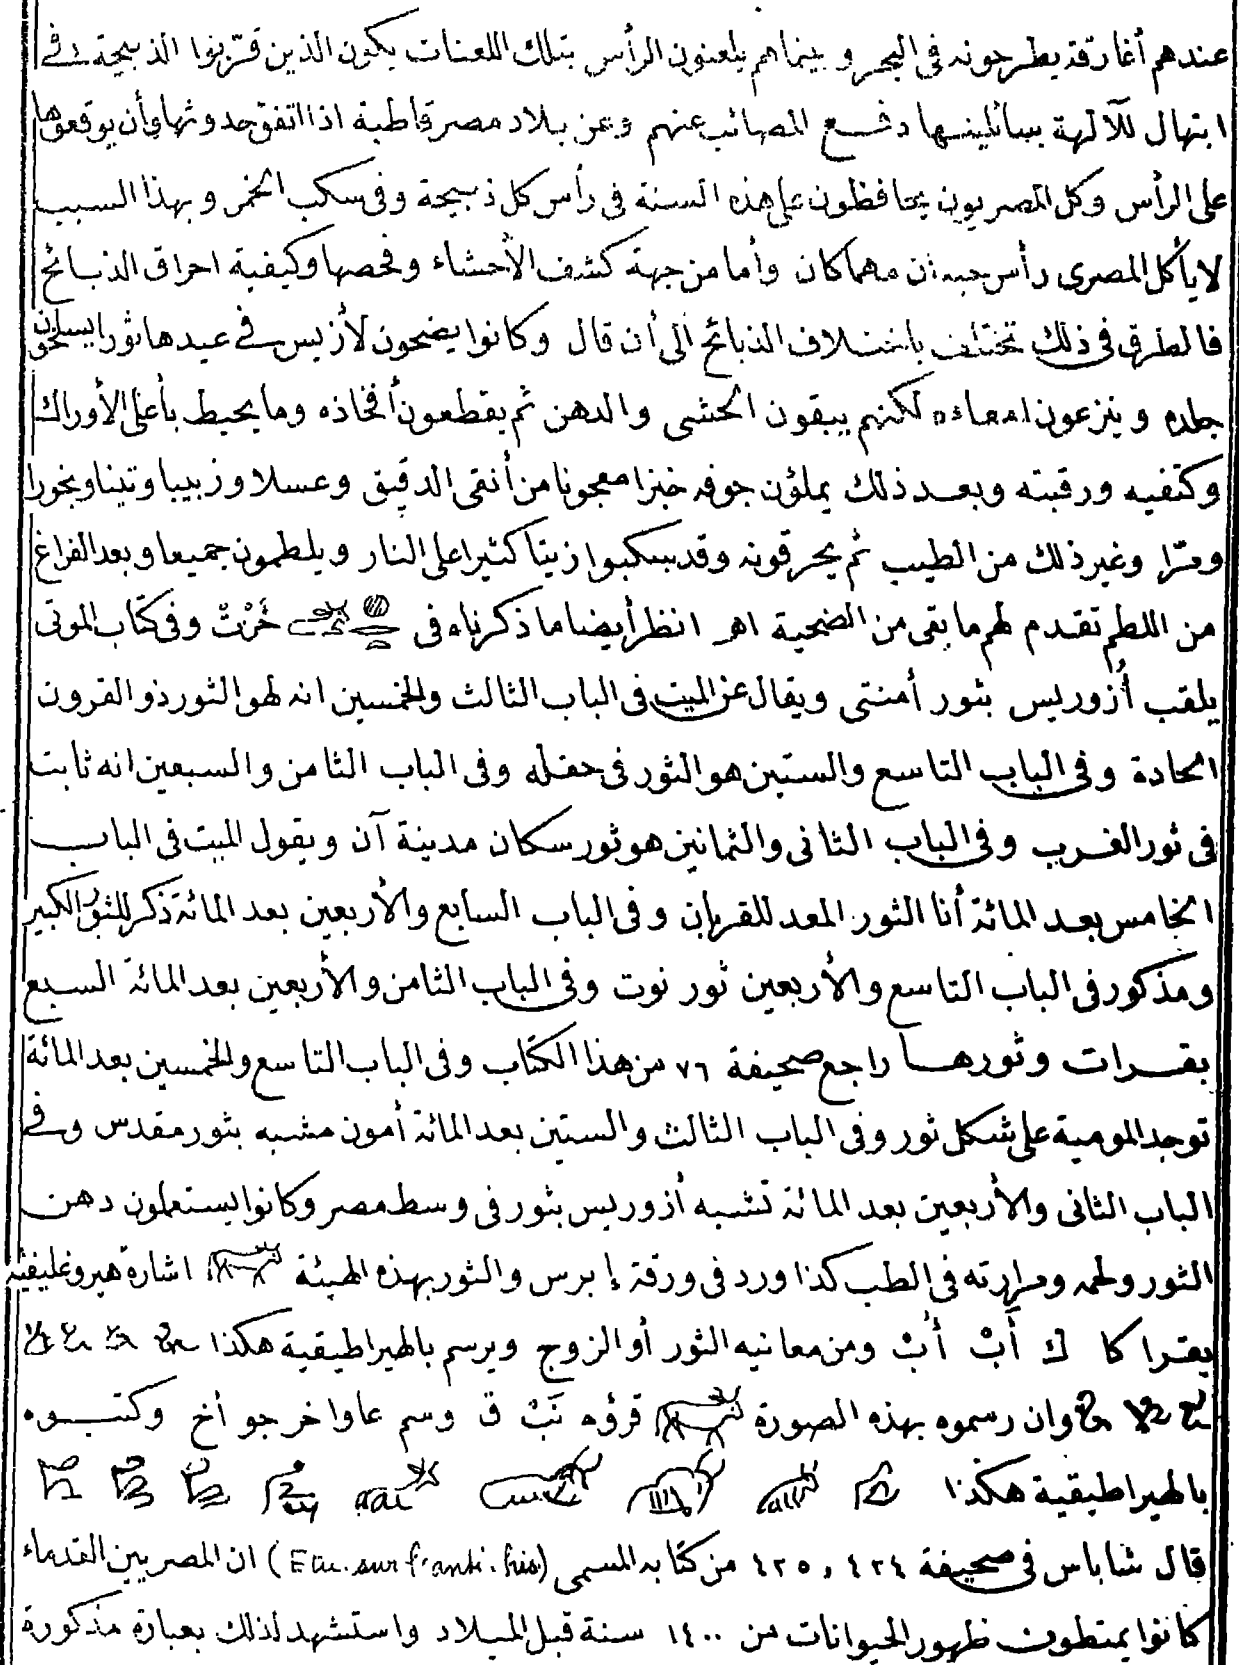 عندهم أغارقة يطرحونه فى البحر و بينماهم يلعنون الرأس بتلك اللعنات يكون الذين قرّبوا الذبيحة فى
ابتهال للآلهة يسائلينها دفع المصائب عنهم وعن بلاد مصر قاطبة اذا اتفق حدوثها وأن يوقعوها
على الرأس وكل المصريون يحافظون على هذه السنة فى رأس كل ذبيحة وفى سكب الخمر و بهذا السبب
لا يأكل المصرى رأس حيوان مهما كان وأما من جهة كشف الأحشاء وفحصها وكيفية احراق الذبائح
فالطرق فى ذلك تختلف باختلاف الذبائح الى أن قال وكانوا يضحون لأزيس فى عيدها ثورا يسلخون
جلده و ينزعون امعاءه لكنهم يبقون الحشى والدهن ثم يقطعون أفخاذه وما يحيط بأعلى الأوراك
وكتفيه ورقبته وبعد ذلك يملؤن جوفه خبزا معجونا من أنقى الدقيق وعسلا وزبيبا وتينا وبخورا
ومرّا وغير ذلك من الطيب ثم يحرقونه وقد سكبوا زيتا كثيرا على النار ويلطمون جميعا وبعد الفراغ
من اللطم تقدم لهم ما بقى من الضحية اهـ انظر أيضا ما ذكرناه فى خَرْتْ وفى كتاب الموتى
يلقب أُزوريس بثور أمنتى ويقال عن الميت فى الباب الثالث والخمسين انه لهو الثور ذو القرون
الحادة وفى الباب التاسع والستين هو الثور فى حقله وفى الباب الثامن والسبعين انه ثابت
فى ثور الغرب وفى الباب الثانى والثمانين هو ثور سكان مدينة آن ويقول الميت فى الباب
الخامس بعد المائة أنا الثور المعد للقربان وفى الباب السابع والأربعين بعد المائة ذكر للثور الكبير
ومذكور فى الباب التاسع والأربعين ثور نوت وفى الباب الثامن والأربعين بعد المائة السبع
بقرات وثورها راجع صحيفة ٧٦ من هذا الكتاب وفى الباب التاسع والخمسين بعد المائة
توجد المومية على شكل ثور وفى الباب الثالث والستين بعد المائة أمون مشبه بثور مقدس وفى
الباب الثانى والأربعين بعد المائة تشبه أزوريس بثور فى وسط مصر وكانوا يستعملون دهن
الثور ولحمه ومرارته فى الطب كذا ورد فى ورقة إبرس والثور بهذه الهيئة اشارة هيروغليفية
يقرا كا ك أَبْ أُبْ ومن معانيه الثور أو الزوج ويرسم بالهيراطيقية هكذا
وان رسموه بهذه الصورة قرؤه نَبْ ق وسم عا وا خر جو أخ وكتبوه
بالهيراطيقية هكذا
قال شاباس فى صحيفة ٤٢٤ و ٤٢٥ من كتابه المسمى (Etu. sur l'anti. his) ان المصريين القدماء
كانوا يمتطون ظهور الحيوانات من ١٤٠٠ سنة قبل الميلاد واستشهد لذلك بعبارة مذكورة